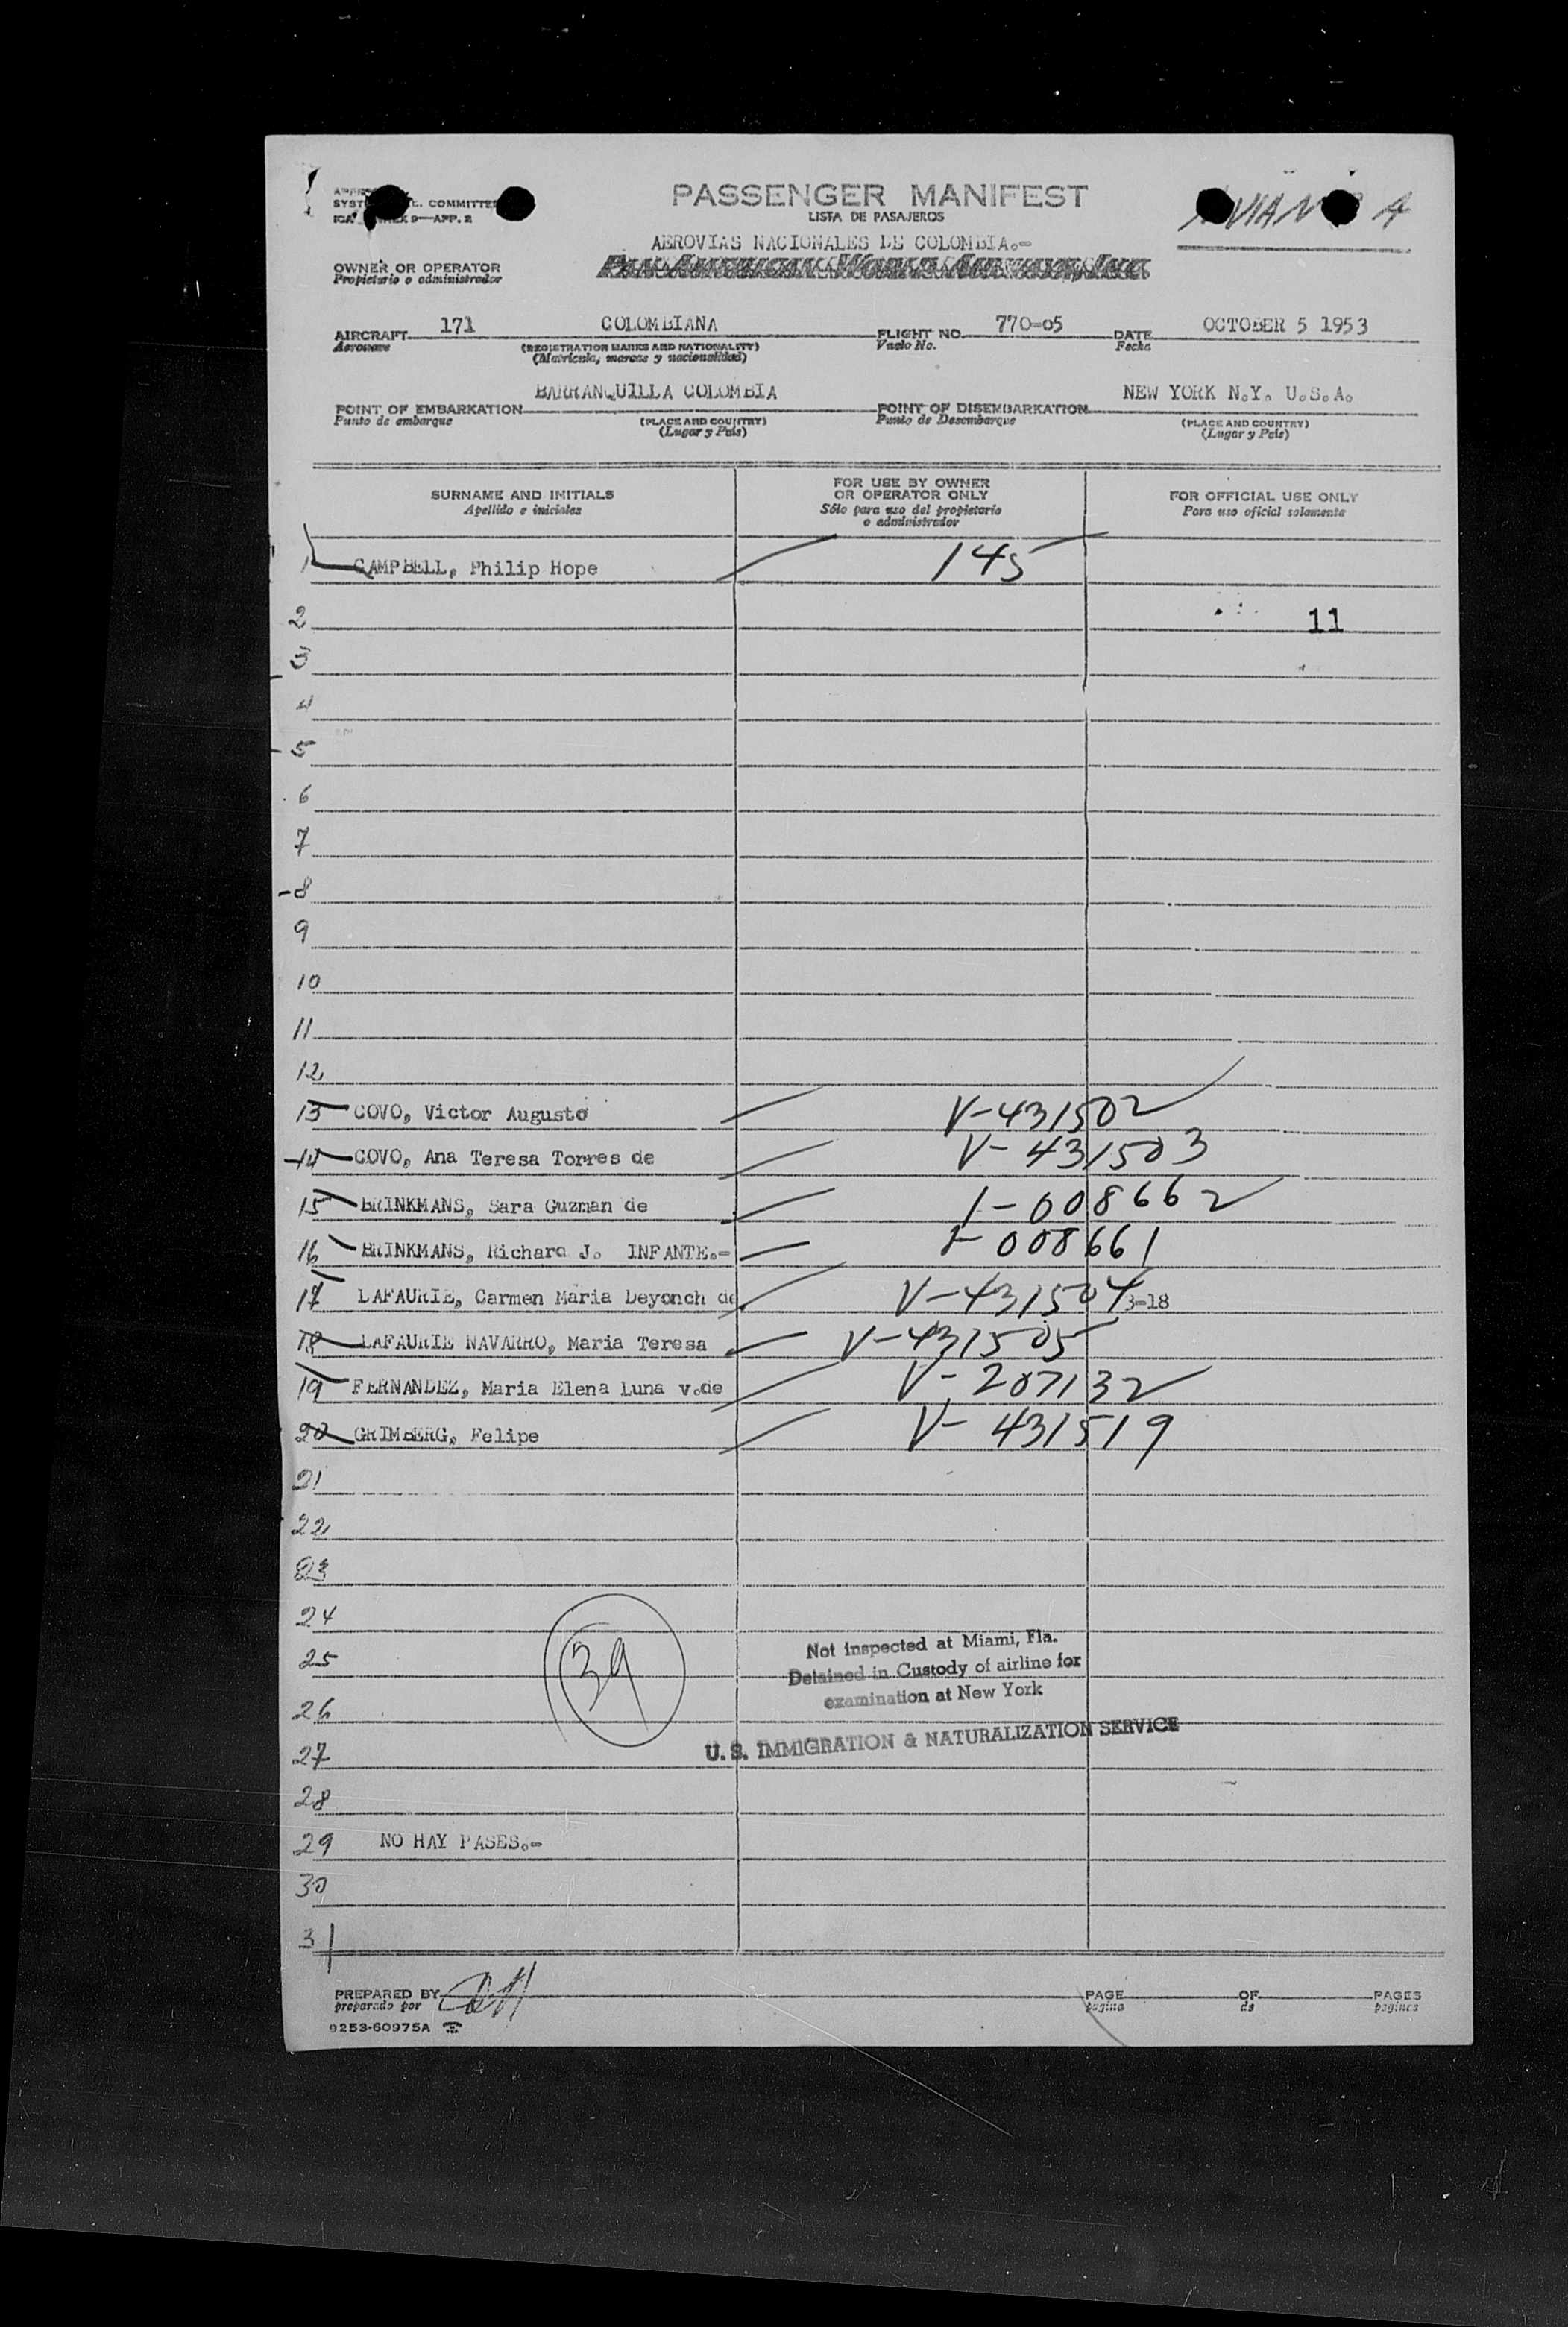 PASSENGER MANIFEST
LISTA DE PASAJEROS
COMMITTEE
9—APP. 2
AEROVIAS NACIONALES DE COLOMBIA.-
OWNER OR OPERATOR
Propietario o administrador
PAN AMERICAN WORLD AIRWAYS, INC.
AIRCRAFT 171 COLOMBIANA FLIGHT NO. 770-05 DATE OCTOBER 5 1953
Aeronave (REGISTRATION MARKS AND NATIONALITY) Vuelo No. Fecha
(Matricula, marcas y nacionalidad)
BARRANQUILLA COLOMBIA NEW YORK N.Y. U.S.A.
POINT OF EMBARKATION POINT OF DISEMBARKATION
Punto de embarque (PLACE AND COUNTRY) Punto de Desembarque (PLACE AND COUNTRY)
(Lugar y País) (Lugar y País)
SURNAME AND INITIALS
Apellido e iniciales
FOR USE BY OWNER
OR OPERATOR ONLY
Sólo para uso del propietario
o administrador
FOR OFFICIAL USE ONLY
Para uso oficial solamente
1 CAMPBELL, Philip Hope 145
2 11
3
4
5
6
7
8
9
10
11
12
13 COVO, Victor Augusto V-431502
14 COVO, Ana Teresa Torres de V-431503
15 BRINKMANS, Sara Guzman de I-008662
16 BRINKMANS, Richard J. INFANTE.- I-008661
17 LAFAURIE, Carmen Maria Deyonch de V-431504 3-18
18 LAFAURIE NAVARRO, Maria Teresa V-431505
19 FERNANDEZ, Maria Elena Luna v.de V-207132
20 GRIMBERG, Felipe V-431519
21
22
23
24
25
26
27
28
39
Not inspected at Miami, Fla.
Detained in Custody of airline for
examination at New York
U. S. IMMIGRATION & NATURALIZATION SERVICE
29 NO HAY PASES.-
30
31
PREPARED BY PAGE OF PAGES
preparado por página de páginas
9253-60975A